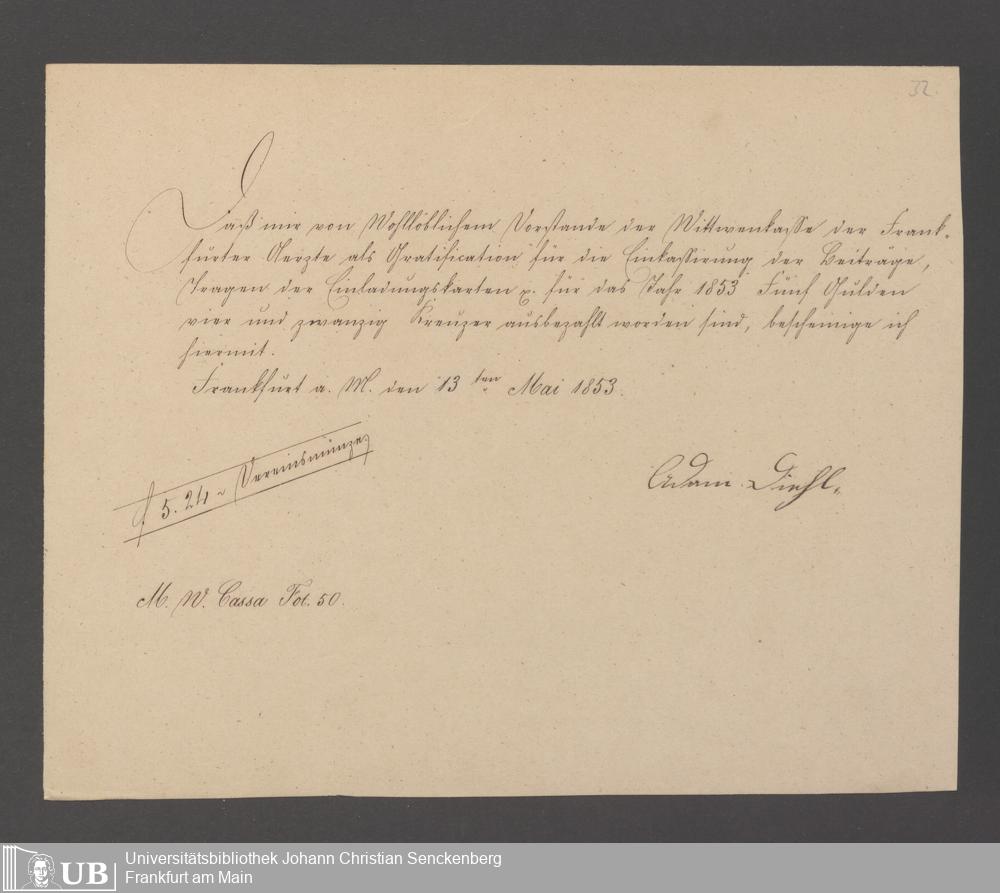 32.
Daß mir von Wohllöblichem Vorstande der Wittwenkasse der Frank-
furter Aerzte als Gratification für die Einkassirung der Beiträge,
Tragen der Einladungskarten p. für das Jahr 1853 Fünf Gulden
vier und zwanzig Kreuzer ausbezahlt worden sind, bescheinige ich
hiermit.
Frankfurt a. M. den 13ten Mai 1853.
f 5. 24 ~ Vereinsmünze
Adam Diehl.
M. W. Cassa Fol. 50.
UB
Universitätsbibliothek Johann Christian Senckenberg
Frankfurt am Main